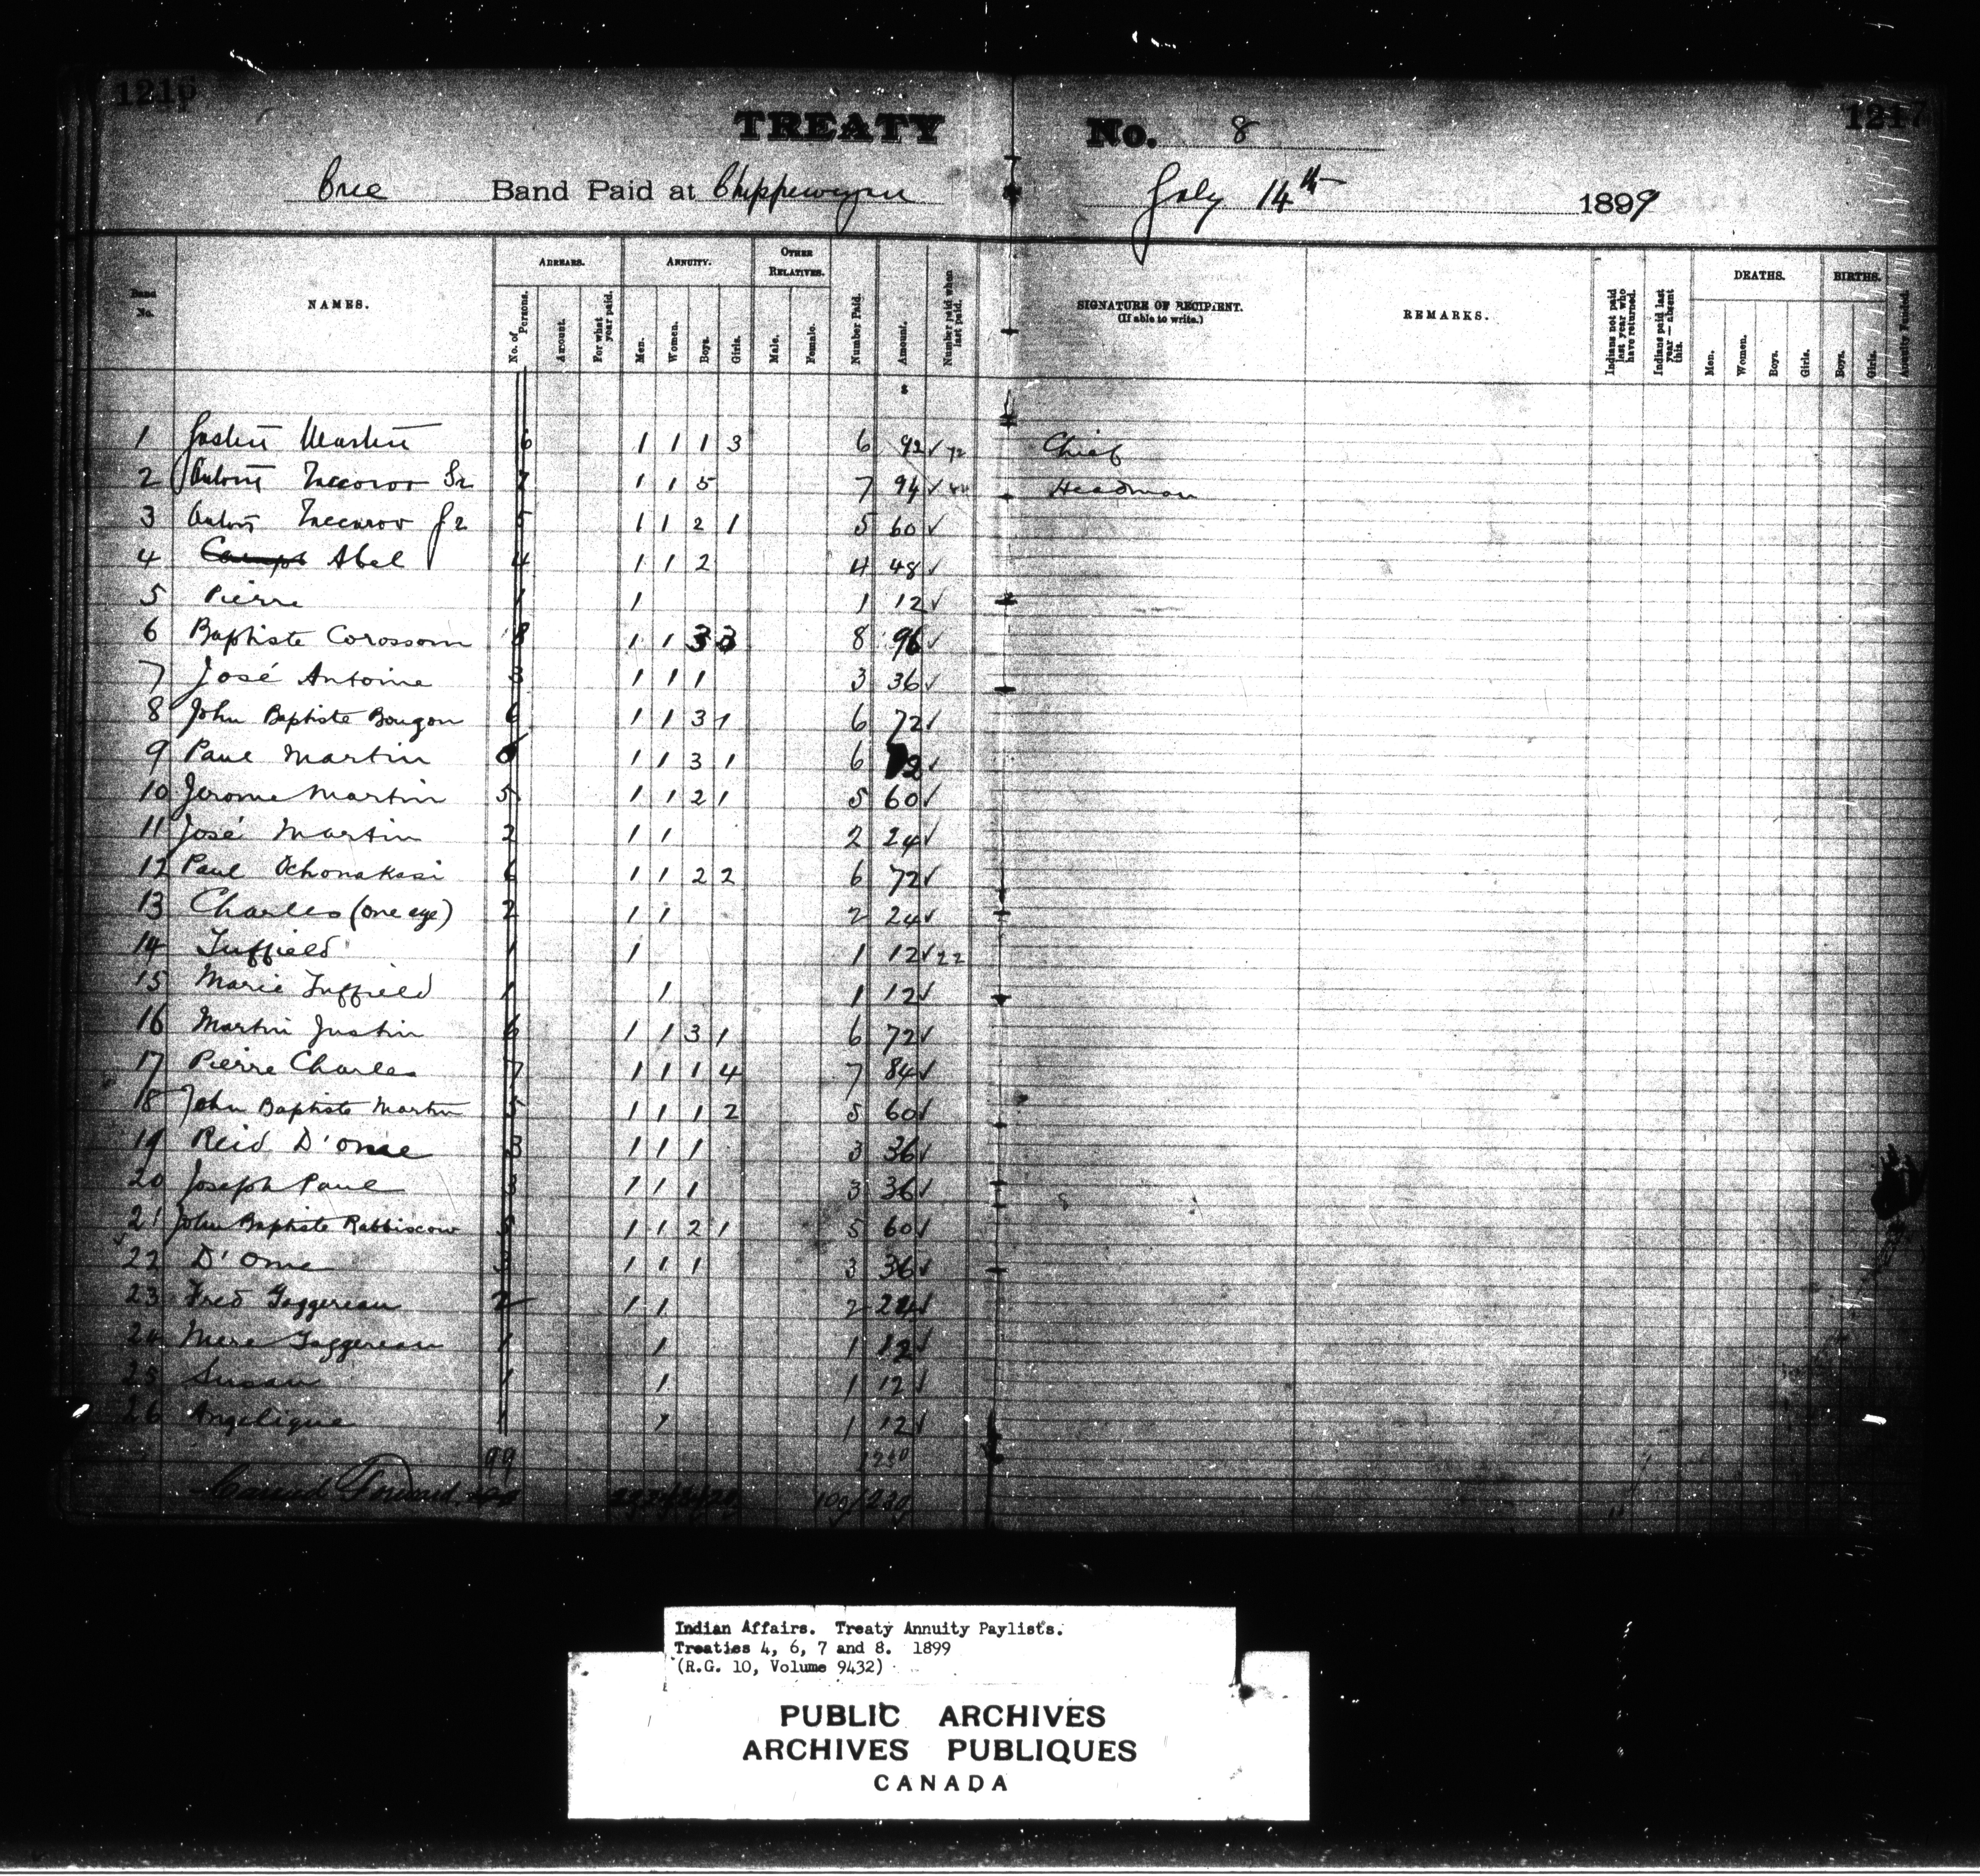 1216
1217
TREATY No. 8
Cree Band Paid at Chippewyan July 14th 1899
Band No.
NAMES.
ARREARS.
No. of Persons.
Amount.
For what year paid.
ANNUITY.
Men.
Women.
Boys.
Girls.
OTHER RELATIVES.
Male.
Female.
Number Paid.
Amount.
Number paid when last paid.
SIGNATURE OF RECIPIENT.
(If able to write.)
REMARKS.
Indians not paid last year who have returned.
Indians paid last year—absent this.
DEATHS.
Men.
Women.
Boys.
Girls.
BIRTHS.
Boys.
Girls.
Annuity Funded.
$
1 Justin Martin 6 1 1 1 3 6 92 ✓ 72 Chief
2 Antoine Taccoroo Sr 7 1 1 5 7 94 ✓ Headman
3 Antoine Taccaroo Jr 5 1 1 2 1 5 60 ✓
4 Abel 4 1 1 2 4 48 ✓
5 Pierre 1 1 1 12 ✓
6 Baptiste Corossom 8 1 1 3 3 8 96 ✓
7 José Antoine 3 1 1 1 3 36 ✓
8 John Baptiste Bougon 6 1 1 3 1 6 72 ✓
9 Paul Martin 6 1 1 3 1 6 72 ✓
10 Jerome Martin 5 1 1 2 1 5 60 ✓
11 José Martin 2 1 1 2 24 ✓
12 Paul Ochonakasi 6 1 1 2 2 6 72 ✓
13 Charles (one eye) 2 1 1 2 24 ✓
14 Tuffield 1 1 1 12 ✓ 22
15 Marie Tuffield 1 1 1 12 ✓
16 Martin Justin 6 1 1 3 1 6 72 ✓
17 Pierre Charles 7 1 1 1 4 7 84 ✓
18 John Baptiste Martin 5 1 1 1 2 5 60 ✓
19 Reid D'ome 3 1 1 1 3 36 ✓
20 Joseph Paul 3 1 1 1 3 36 ✓
21 John Baptiste Rabbiscow 5 1 1 2 1 5 60 ✓
22 D'Ome 3 1 1 1 3 36 ✓
23 Fred Gaggereau 2 1 1 2 24 ✓
24 Mere Gaggereau 1 1 1 12 ✓
25 Susan 1 1 1 12 ✓
26 Angelique 1 1 1 12 ✓
99 1230
Carried Forward 1230
Indian Affairs. Treaty Annuity Paylists.
Treaties 4, 6, 7 and 8. 1899
(R.G. 10, Volume 9432)
PUBLIC ARCHIVES
ARCHIVES PUBLIQUES
CANADA